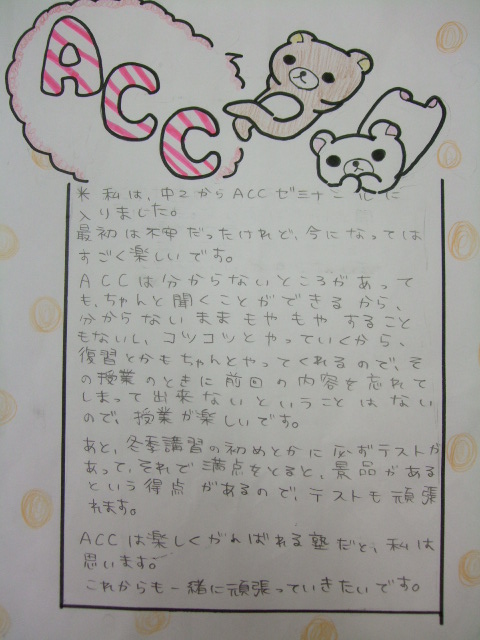 ACC
* 私は、中2からACCゼミナールに
入りました。
最初は不安だったけれど、今になっては
すごく楽しいです。
ACCは分からないところがあって
も、ちゃんと聞くことができるから、
分からないままもやもやすること
もないし、コツコツとやっていくから、
復習とかもちゃんとやってくれるので、そ
の授業のときに前回の内容を忘れて
しまって出来ないということはない
ので、授業が楽しいです。
あと、冬季講習の初めとかに必ずテストが
あって、それで満点をとると、景品がある
という得点があるので、テストも頑張
れます。
ACCは楽しくがんばれる塾だと、私は
思います。
これからも一緒に頑張っていきたいです。